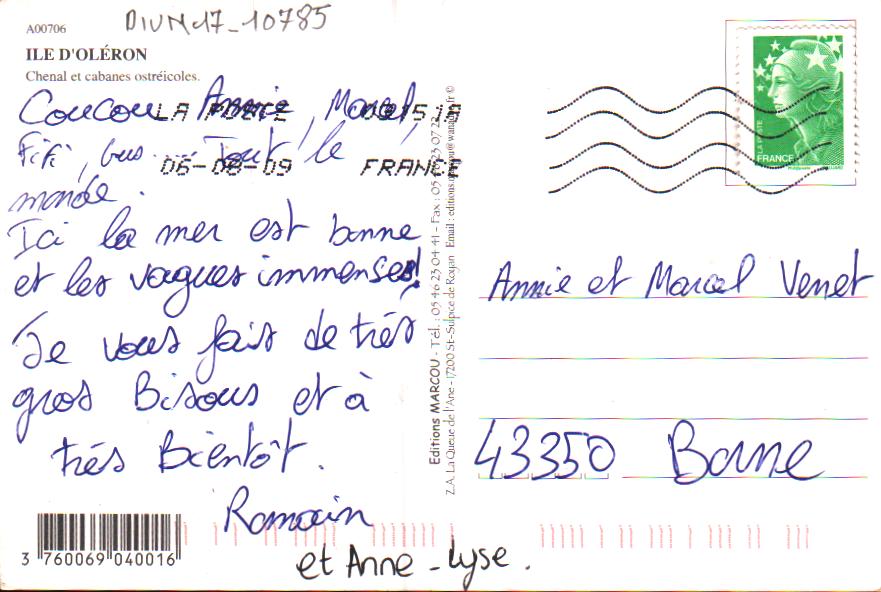 A00706
DIVN17-10785
ILE D'OLÉRON
Chenal et cabanes ostréicoles.
Coucou Annie, Marcel,
Fifi, Gus ... Tout le
monde.
Ici la mer est bonne
et les vagues immenses!
Je vous fais de très
gros Bisous et à
très Bientôt.
Romain
et Anne-Lyse.
LA POSTE
06-08-09 FRANCE
3 760069 040016
Editions MARCOU - Tél. : 05 46 23 04 41 - Fax : 05
Z.A. La Queue de l'Ane - 17200 St-Sulpice de Royan Email : editions
LA POSTE
FRANCE
Annie et Marcel Venet
43350 Borne